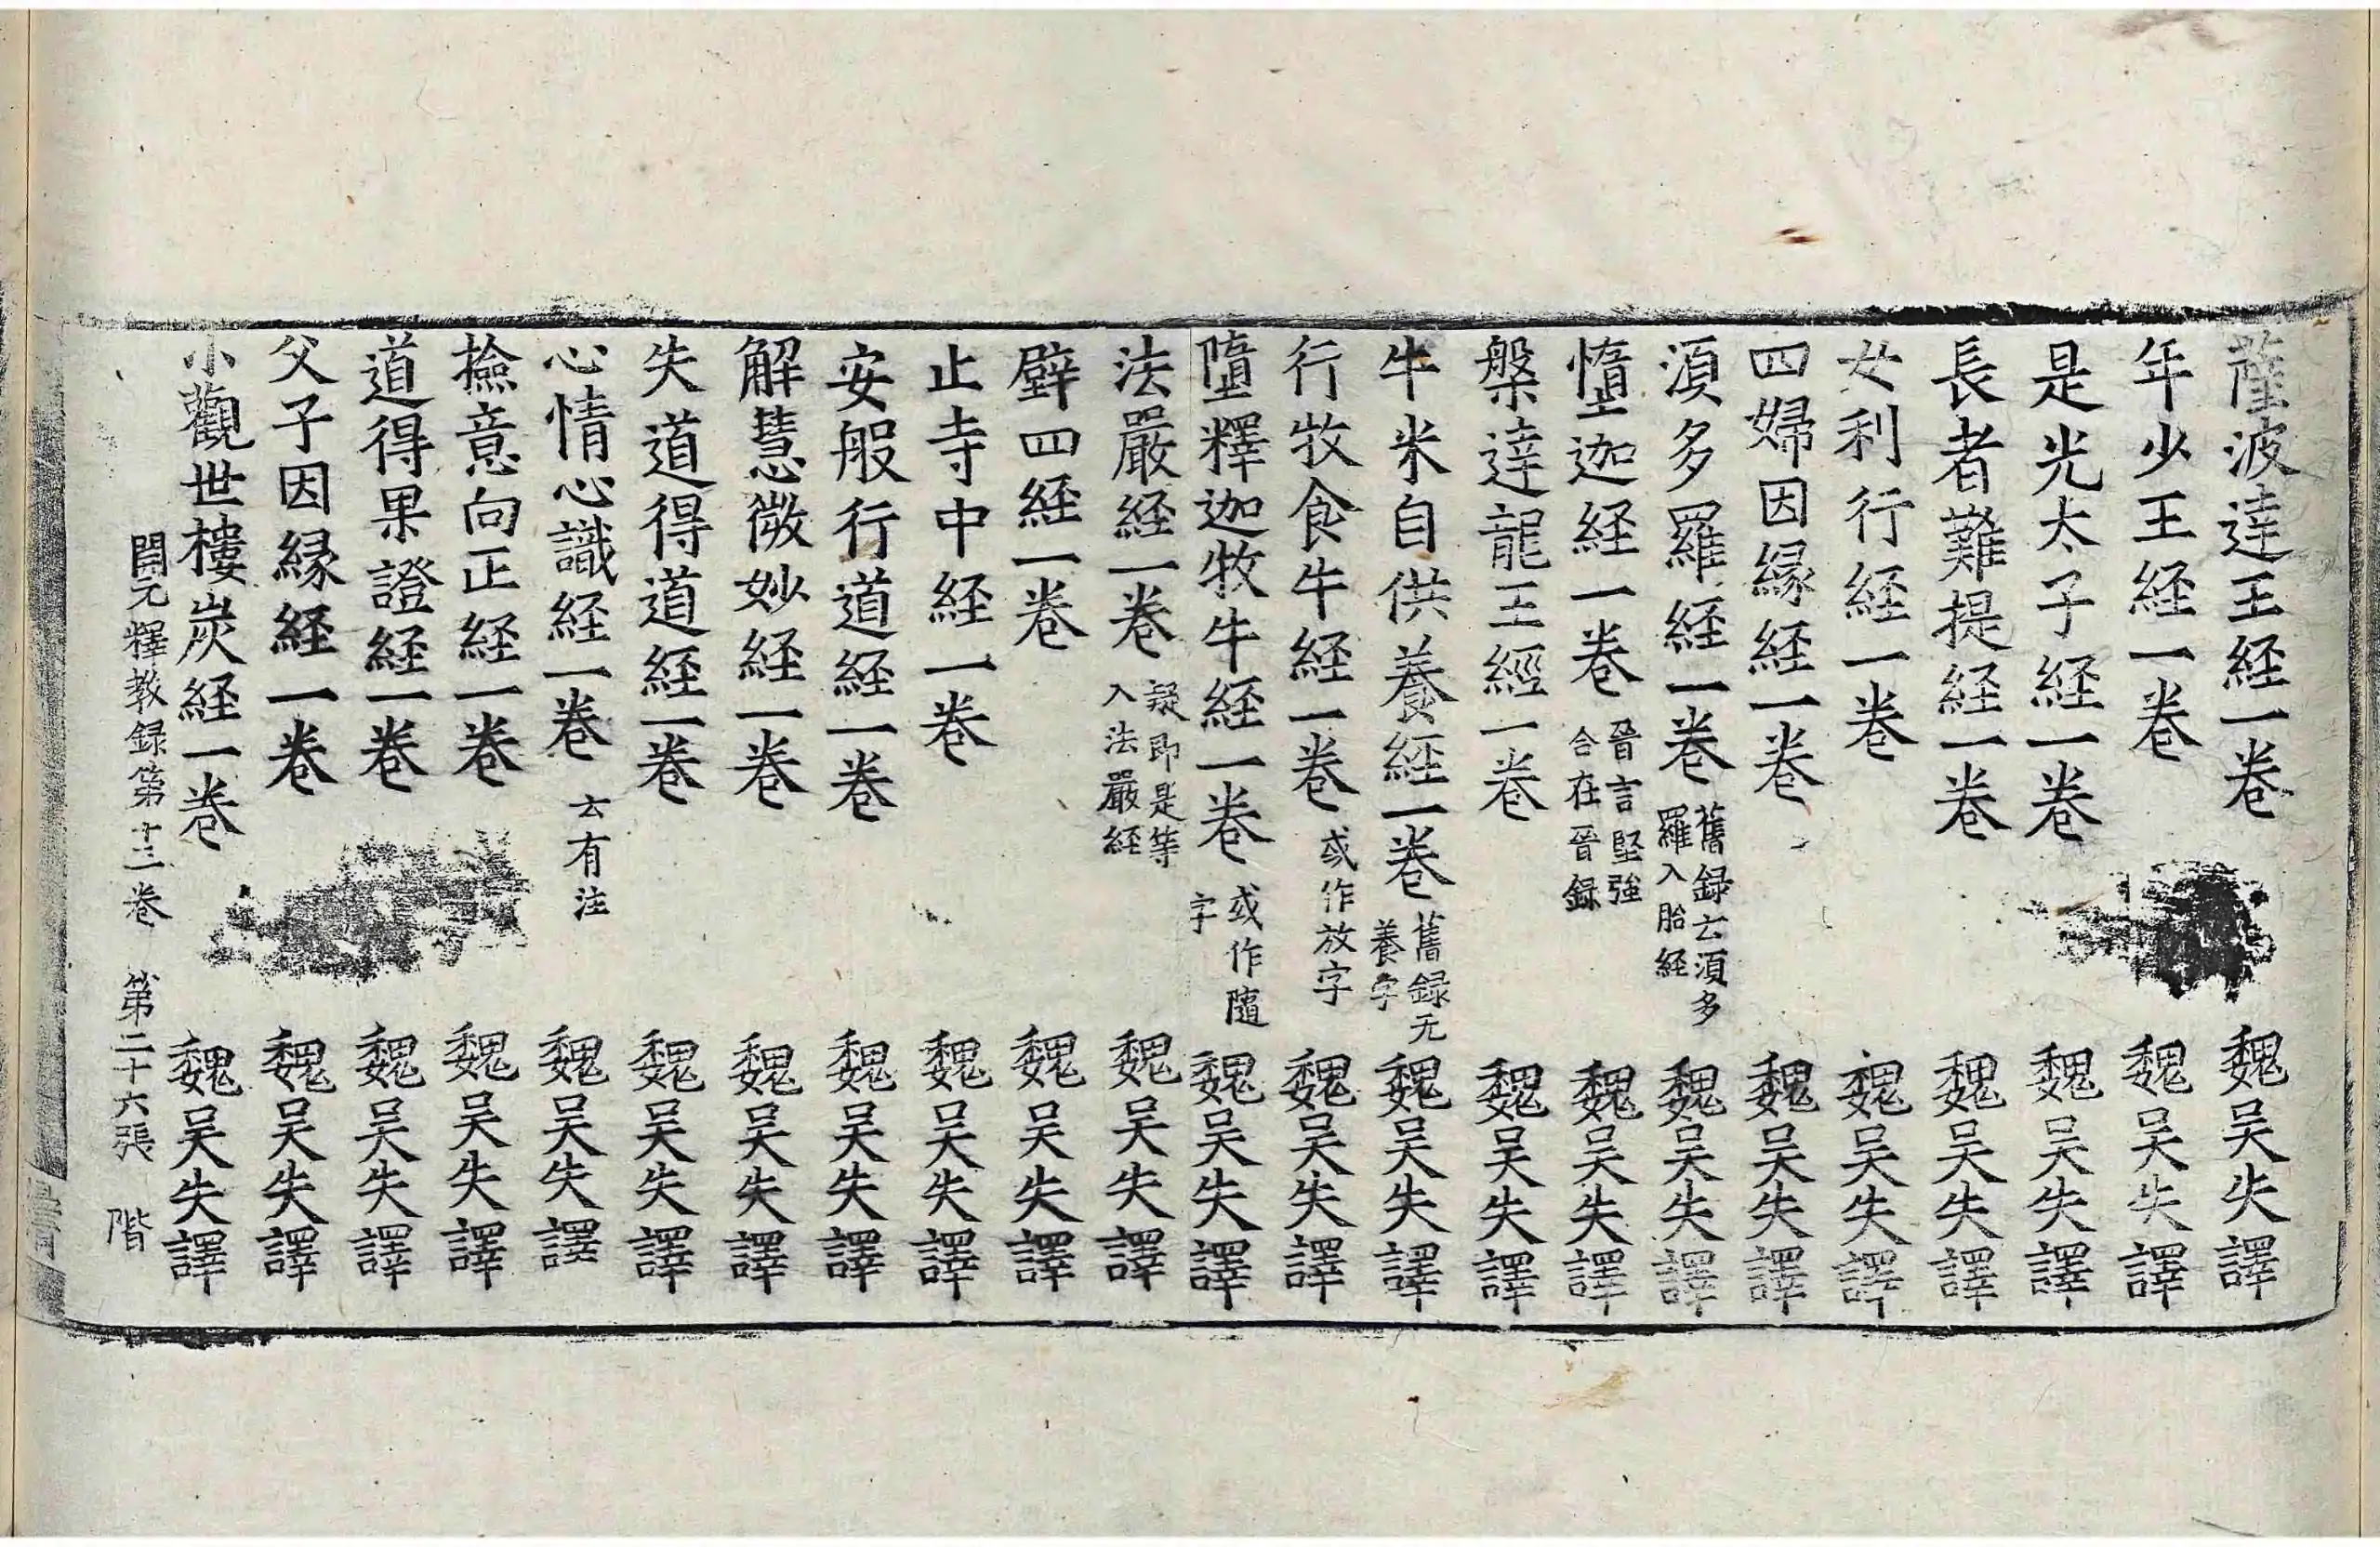 薩波達王経一卷 魏吴失譯
年少王経一卷 魏吴失譯
是光太子経一卷 魏吴失譯
長者難提経一卷 魏吴失譯
女利行経一卷 魏吴失譯
四婦因緣経一卷 魏吴失譯
湏多羅経一卷 舊録云湏多羅入胎経 魏吴失譯
憻迦経一卷 晉言堅強合在晉録 魏吴失譯
槃達龍王經一卷 魏吴失譯
牛米自供養經一卷 舊録无養字 魏吴失譯
行牧食牛経一卷 或作放字 魏吴失譯
墮釋迦牧牛経一卷 或作隨字 魏吴失譯
法嚴経一卷 疑即是等入法嚴経 魏吴失譯
壁四経一卷 魏吴失譯
止寺中経一卷 魏吴失譯
安般行道経一卷 魏吴失譯
解慧微妙経一卷 魏吴失譯
失道得道経一卷 魏吴失譯
心情心識経一卷 云有注 魏吴失譯
撿意向正経一卷 魏吴失譯
道得果證経一卷 魏吴失譯
父子因緣経一卷 魏吴失譯
小觀世樓炭経一卷 魏吴失譯
開元釋教録第十三卷 第二十六張 階